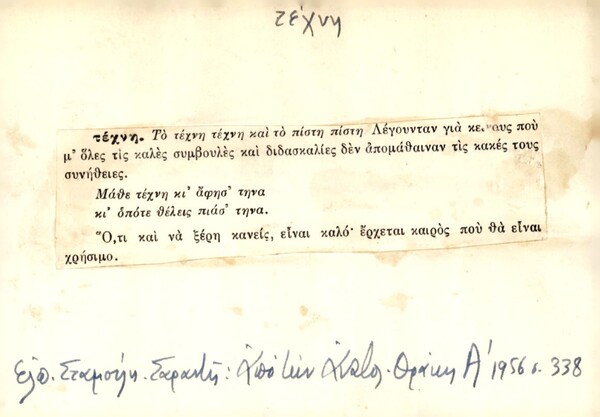 τέχνη
τέχνη. Τὸ τέχνη τέχνη καὶ τὸ πίστη πίστη Λέγουνταν γιὰ κείνους ποὺ
μ' ὅλες τὶς καλὲς συμβουλὲς καὶ διδασκαλίες δὲν ἀπομάθαιναν τὶς κακές τους
συνήθειες.
Μάθε τέχνη κι' ἄφησ' τηνα
κι' ὁπότε θέλεις πιάσ' τηνα.
Ὅ,τι καὶ νὰ ξέρη κανείς, εἶναι καλό· ἔρχεται καιρὸς ποὺ θὰ εἶναι
χρήσιμο.
Ἐλπ. Σταμούλη - Σαραντῆ: Ἀπὸ τὴν Ἀνατολ. Θράκη Α' 1956 σ. 338